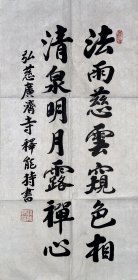 法雨慈雲窺色相
清泉明月露禪心
弘慈廣濟寺釋能持書